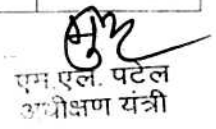 एम.एल. पटेल
अधीक्षण यंत्री